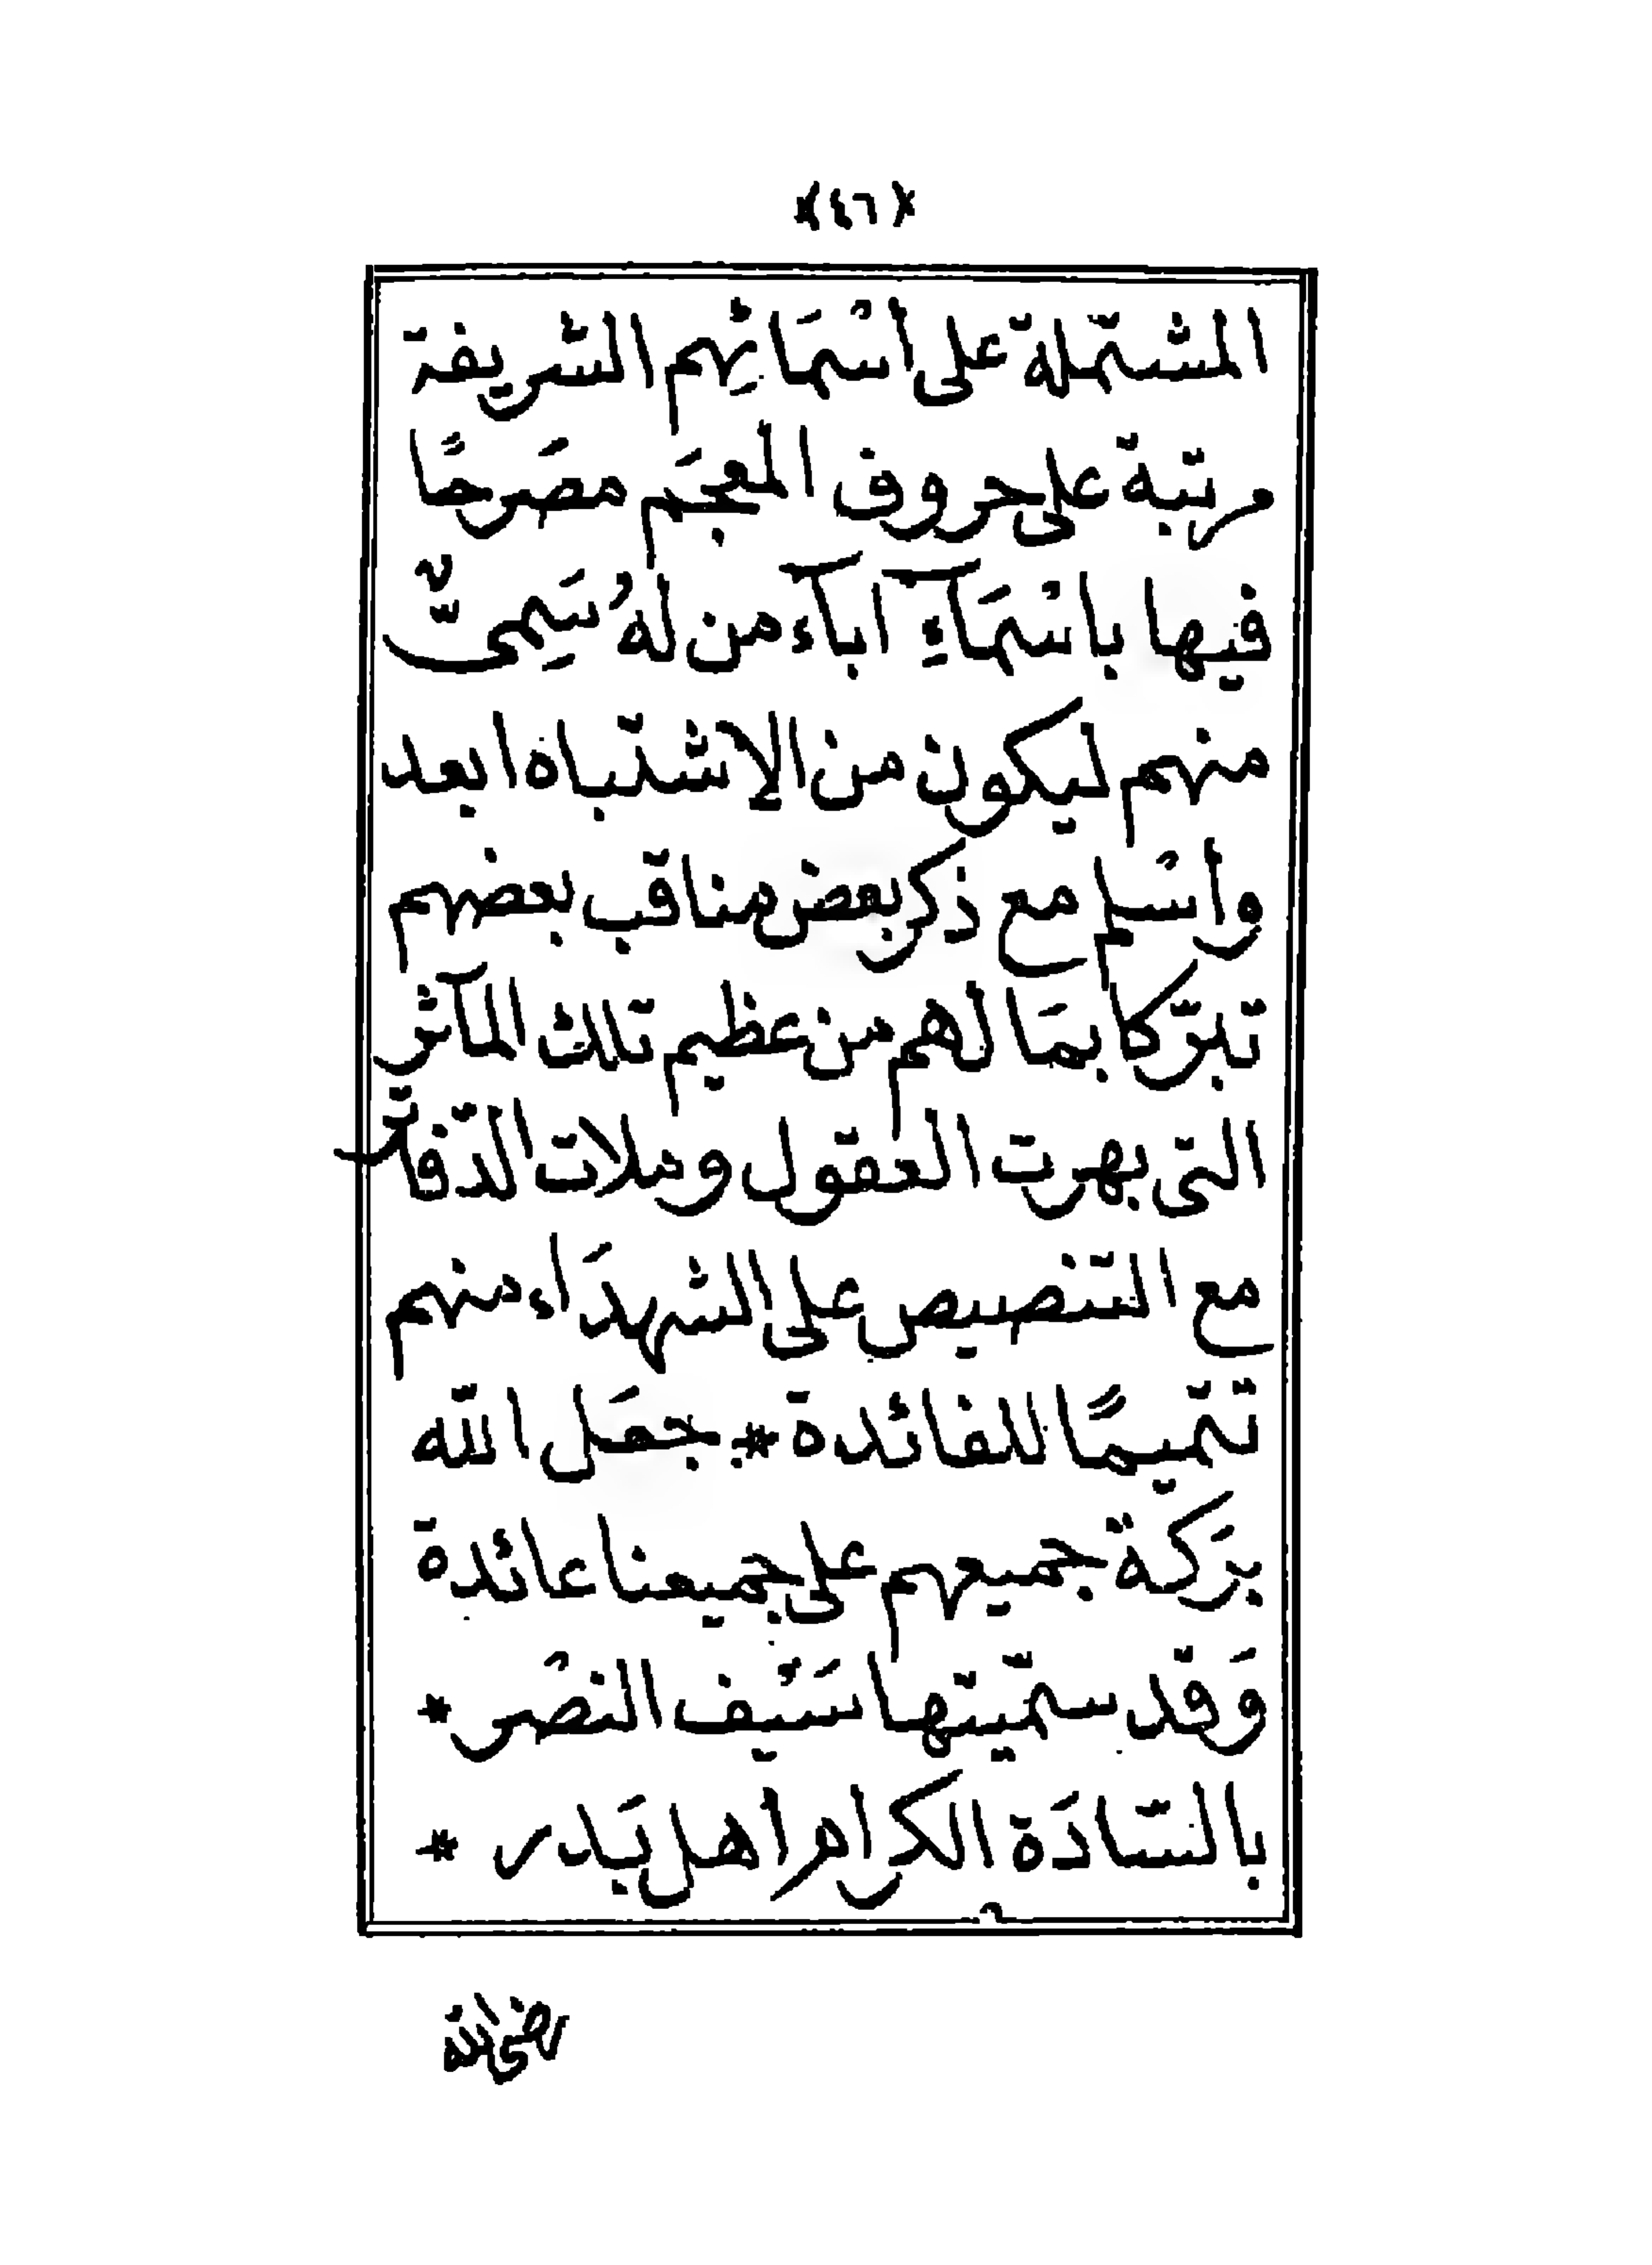 ﴿٤٦﴾
المشتملة على اسْمَائِهم الشّريفة
مرتبة على حروف المعجَم مصَرحًا
فيها باسْمَآءِ آبآء من لهُ سَمِىٌّ
منهم ليكون من الاشتباه ابعد
واسْلم مع ذكر بعض مناقب بعضهم
تبرّكا بمَا لهم من عظيم تلك المآثر
التى بهرت العقول وملات الدّفاتر
مع التنصيص على الشهدَاء منهم
تتميمًا للفائدة * جعَل الله
برَكة جميعهم على جميعنا عائدة
وَقد سمّيتها سَيْف النصْر *
بالسّادَة الكرام اهل بَدر *
رضى الله